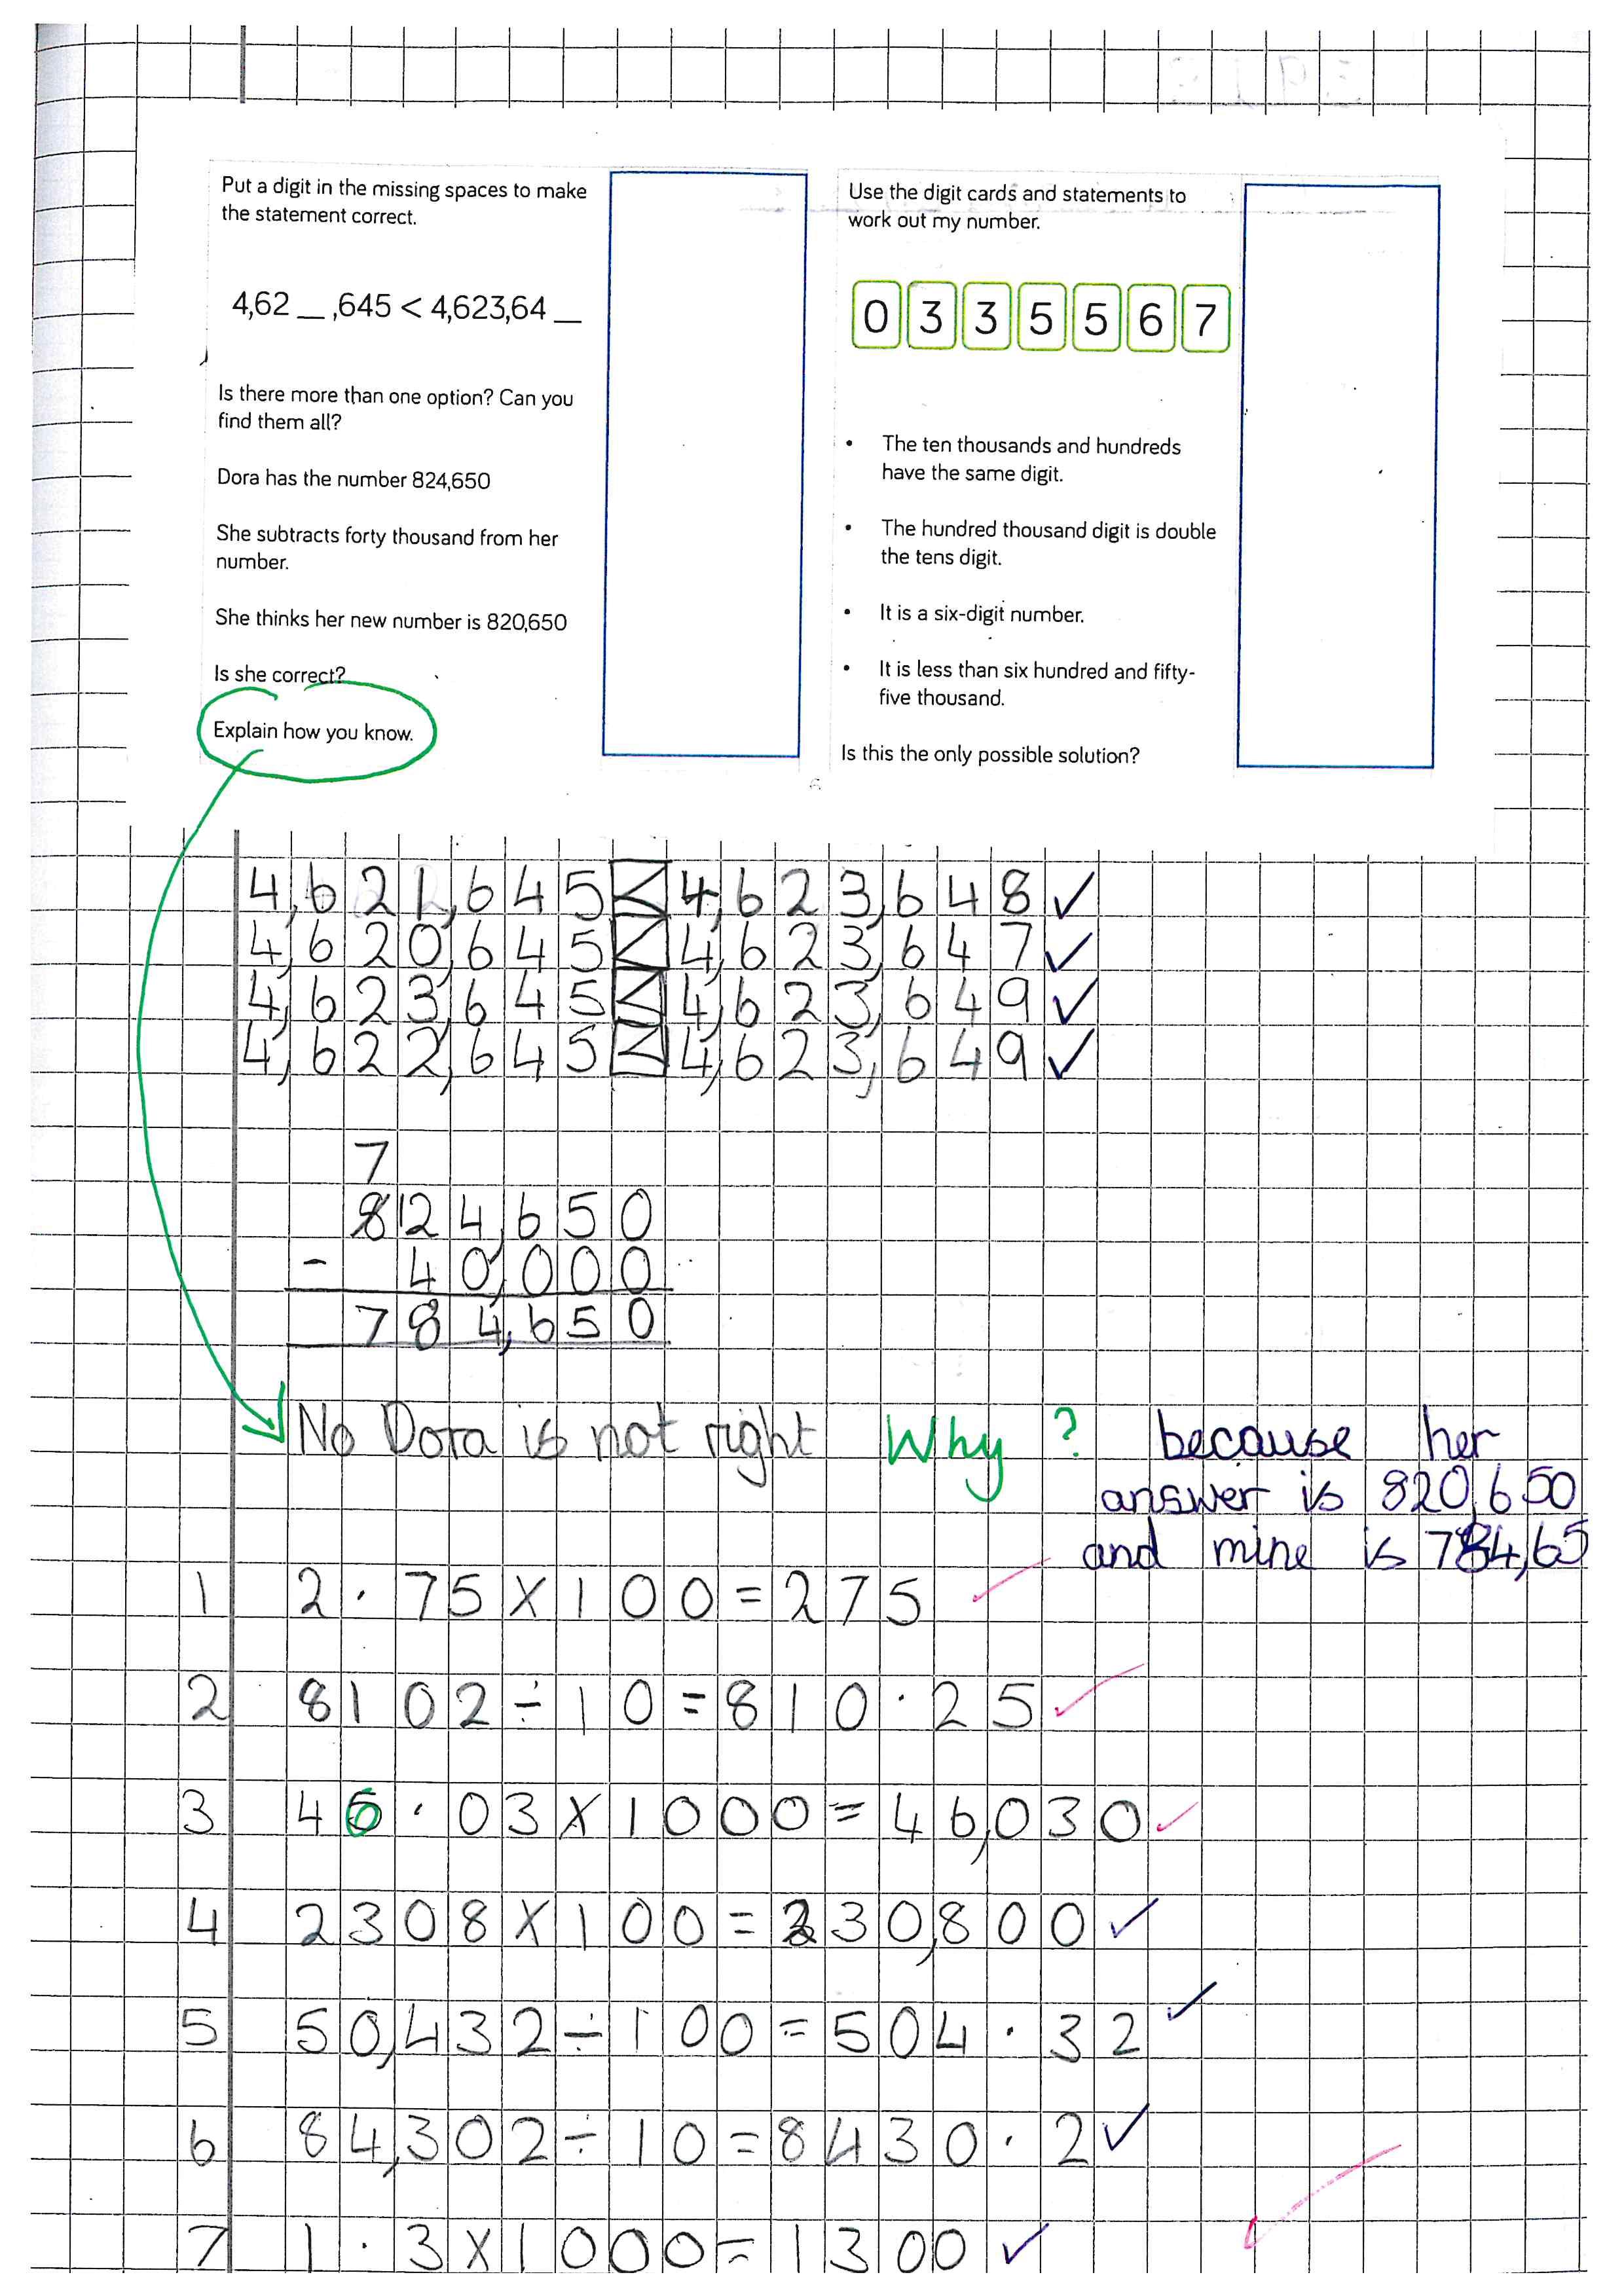 Put a digit in the missing spaces to make
the statement correct.
4,62 __ ,645 < 4,623,64 __
Is there more than one option? Can you
find them all?
Dora has the number 824,650
She subtracts forty thousand from her
number.
She thinks her new number is 820,650
Is she correct?
Explain how you know.
Use the digit cards and statements to
work out my number.
0 3 3 5 5 6 7
• The ten thousands and hundreds
have the same digit.
• The hundred thousand digit is double
the tens digit.
• It is a six-digit number.
• It is less than six hundred and fifty-
five thousand.
Is this the only possible solution?
4,621,645 < 4,623,648 ✓
4,620,645 < 4,623,647 ✓
4,623,645 < 4,623,649 ✓
4,622,645 < 4,623,649 ✓
7
8124,650
- 40,000
784,650
No Dora is not right Why ? because her
answer is 820,650
and mine is 784,65
1 2.75 X 100 = 275 ✓
2 8102 ÷ 10 = 810.25 ✓
3 46.03 X 1000 = 46,030 ✓
4 2308 X 100 = 230,800 ✓
5 50,432 ÷ 100 = 504.32 ✓
6 84,302 ÷ 10 = 8430.2 ✓
7 1.3 X 1000 = 1300 ✓